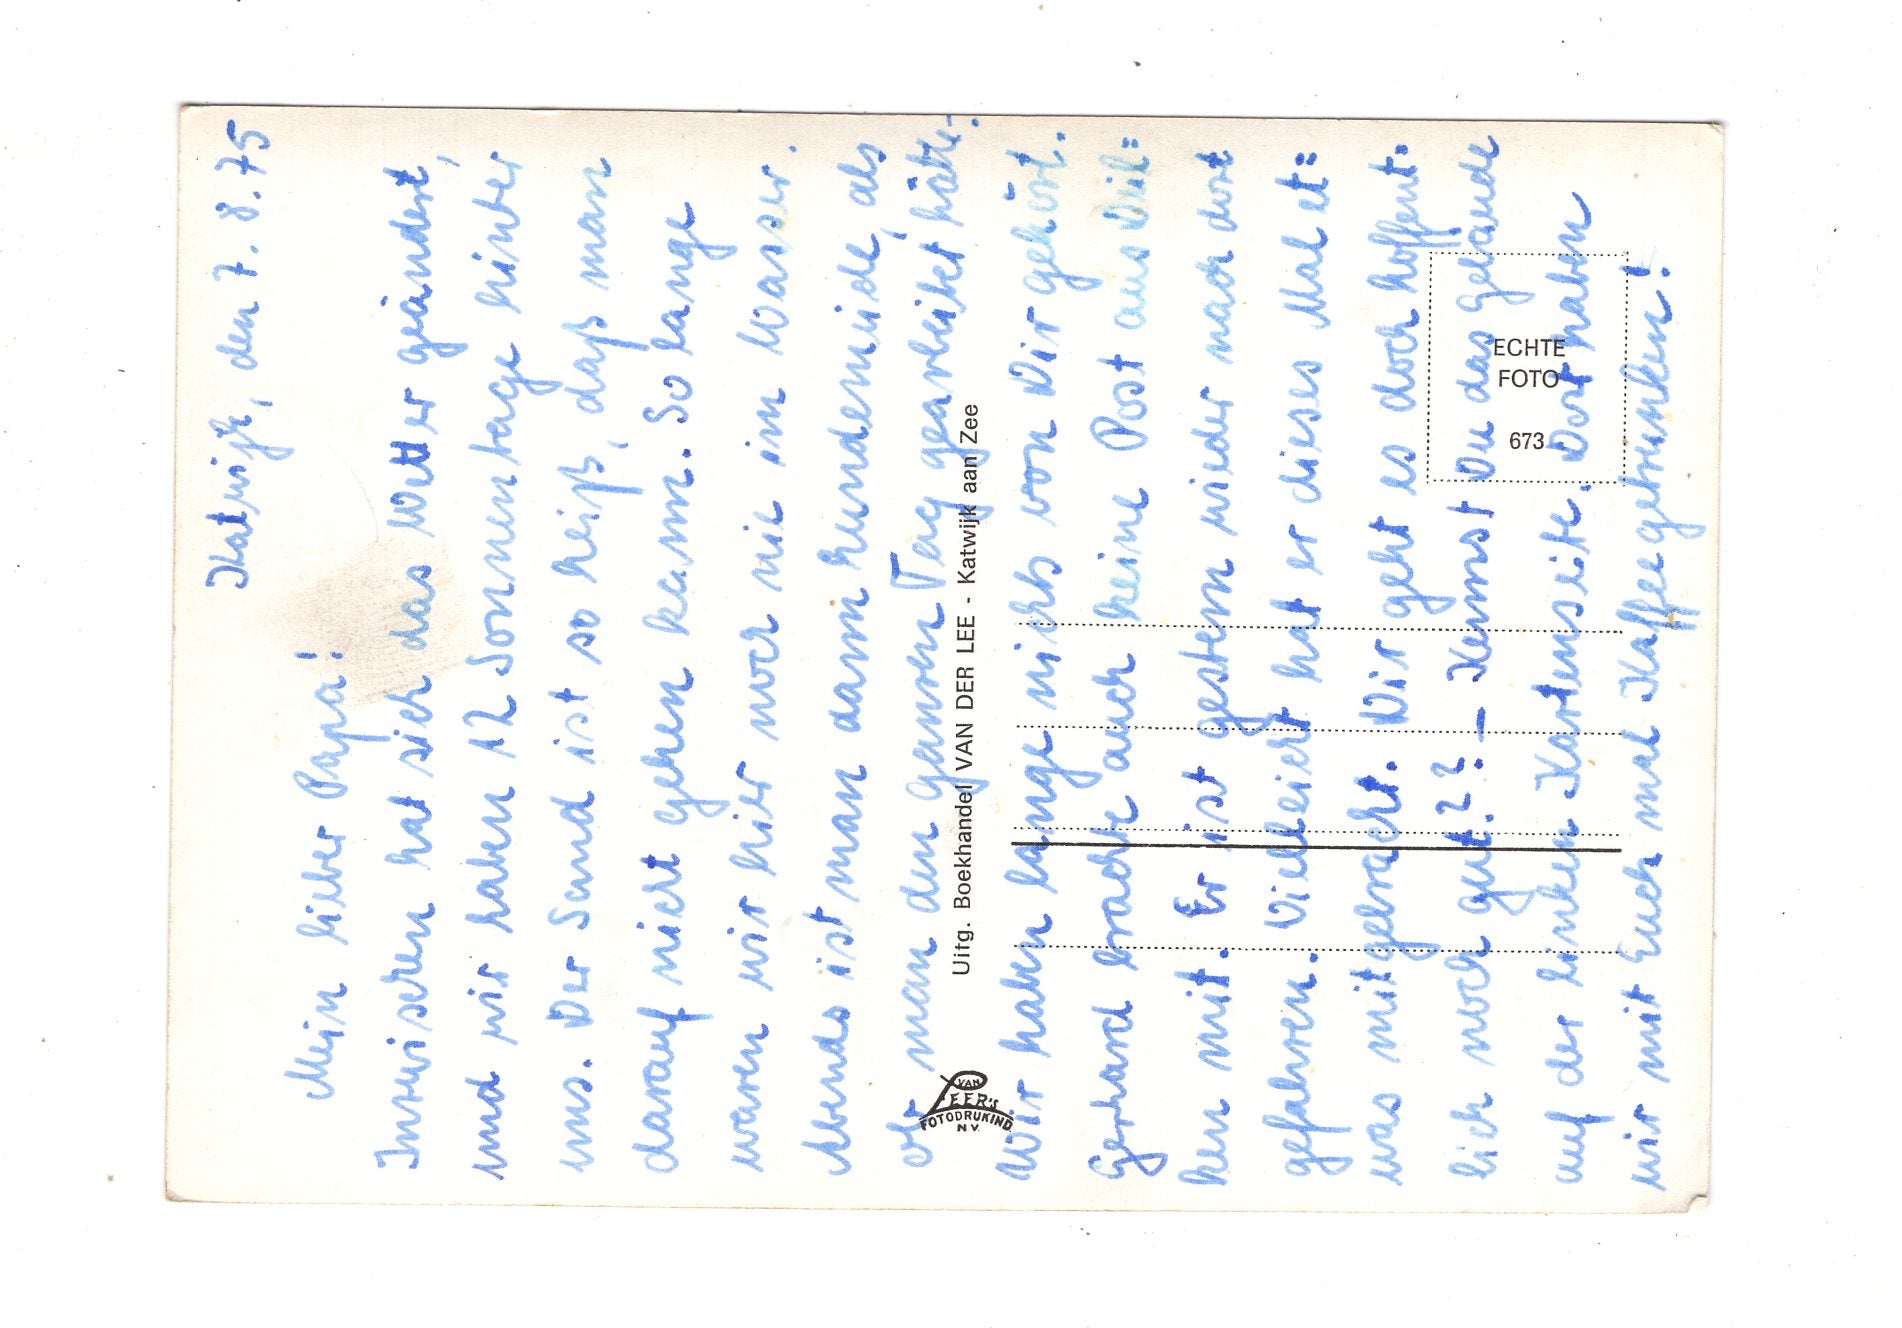 Katwijk, den 7.8.75
Mein lieber Papa!
Inzwischen hat sich das Wetter geändert,
und wir haben 12 Sonnentage hinter
uns. Der Sand ist so heiß, daß man
darauf nicht gehen kann. So lange
waren wir hier noch nie im Wasser.
Abends ist man dann hundemüde, als
ob man den ganzen Tag gearbeitet hätte.
Wir haben lange nichts von Dir gehört.
Gerhard brachte auch keine Post aus Dül=
ken mit. Er ist gestern wieder nach dort
gefahren. Vielleicht hat er dieses Mal et=
was mitgebracht. Dir geht es doch hoffent=
lich noch gut?? – Kennst Du das Gebäude
auf der linken Kartenseite. Dort haben
wir mit Euch mal Kaffee getrunken!
Uitg. Boekhandel VAN DER LEE - Katwijk aan Zee
VAN
LEER's
FOTODRUKIND.
N V.
ECHTE
FOTO
673